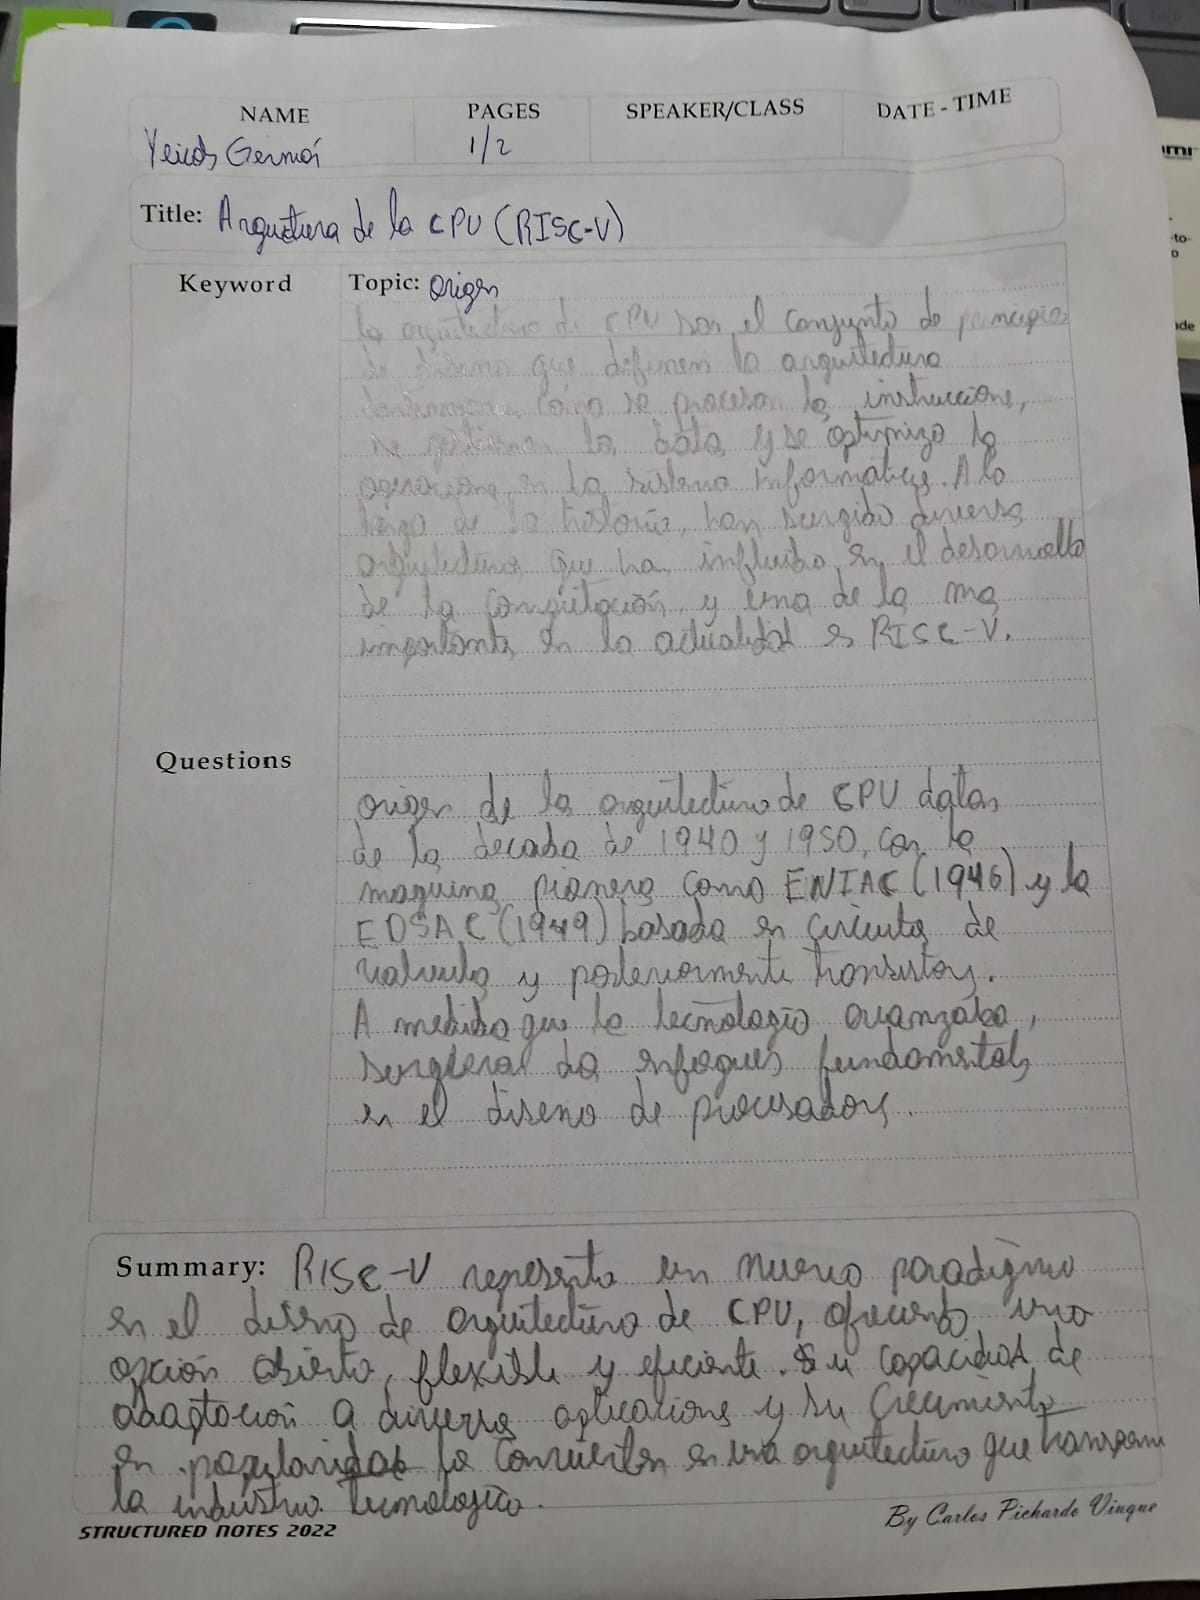 NAME PAGES SPEAKER/CLASS DATE - TIME
1/2
Title: Arquitectura de la CPU (RISC-V)
Keyword Topic: Origen
la arquitectura de CPU son el conjunto de principios
de diseño que definen la arquitectura
como se procesan las instrucciones,
se gestionan los datos y se optimiza las
operaciones en los sistema informáticos. A lo
largo de la historia, han surgido diversas
arquitecturas que han influido en el desarrollo
de la computación, y una de las mas
importantes en la actualidad es RISC-V.
Questions
origen de la arquitectura de CPU datan
de la decada de 1940 y 1950, con las
maquinas pioneras como ENIAC (1946) y la
EDSAC (1949) basada en circuitos de
y posteriormente transistores.
A medida que la tecnologia avanzaba,
surgieron dos enfoques fundamentales
en el diseno de procesadores.
Summary: RISC-V representa un nuevo paradigma
en el diseno de arquitectura de CPU, ofreciendo una
opción abierta, flexible y eficiente. Su capacidad de
adaptacion a diversas aplicaciones y su crecimiento
en popularidad la convierten en una arquitectura que
la industria tecnologica.
STRUCTURED NOTES 2022 By Carlos Pichardo Viuque